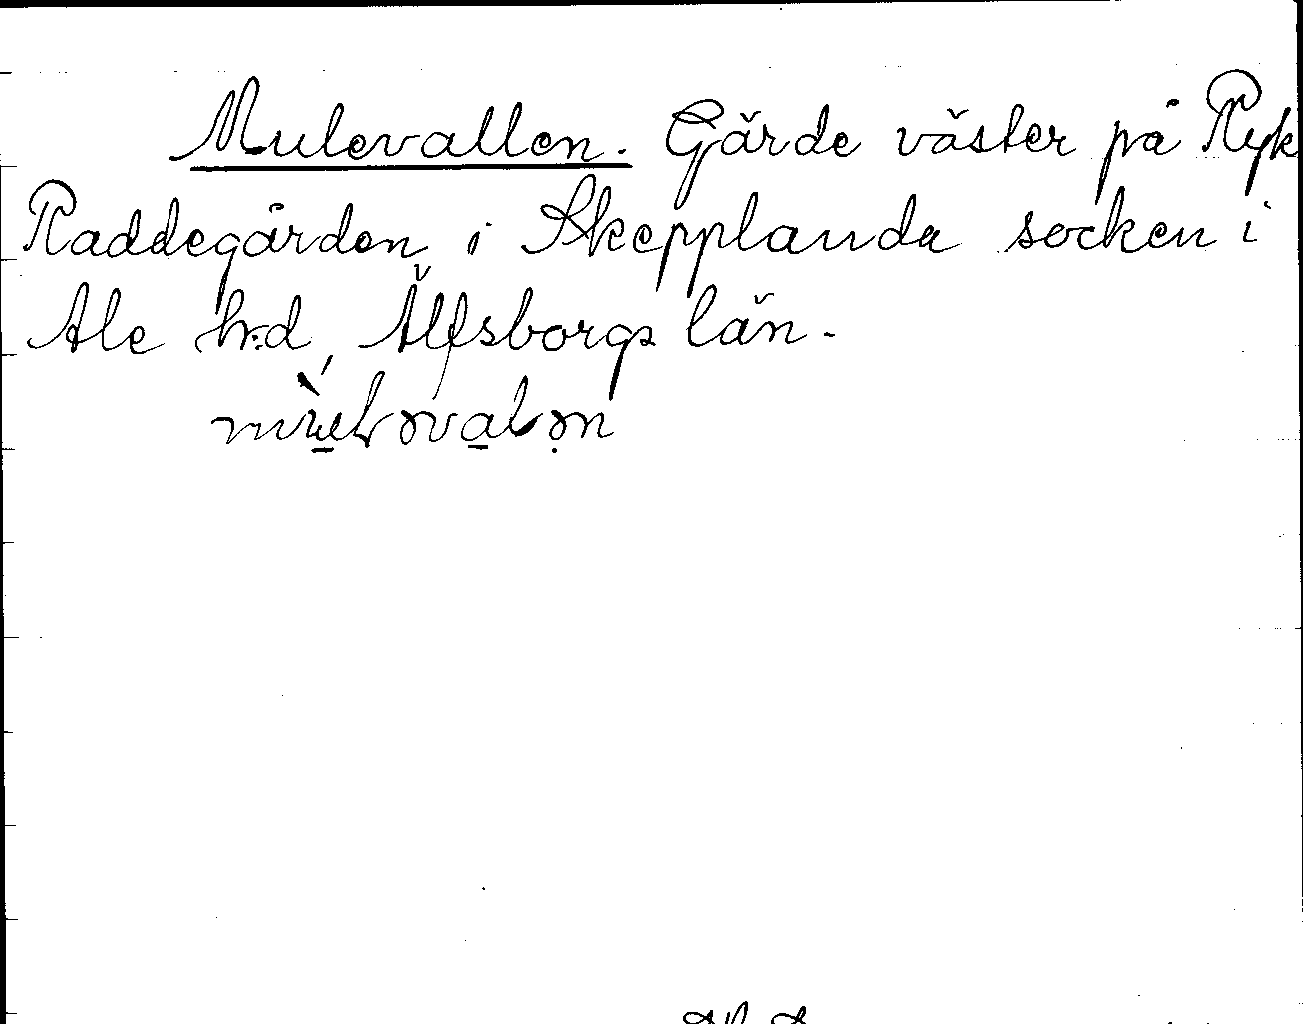 Mulevallen. Gärde väster på Ryk
Raddegården i Skepplanda socken i
Ale hrd, Älfsborgs län.